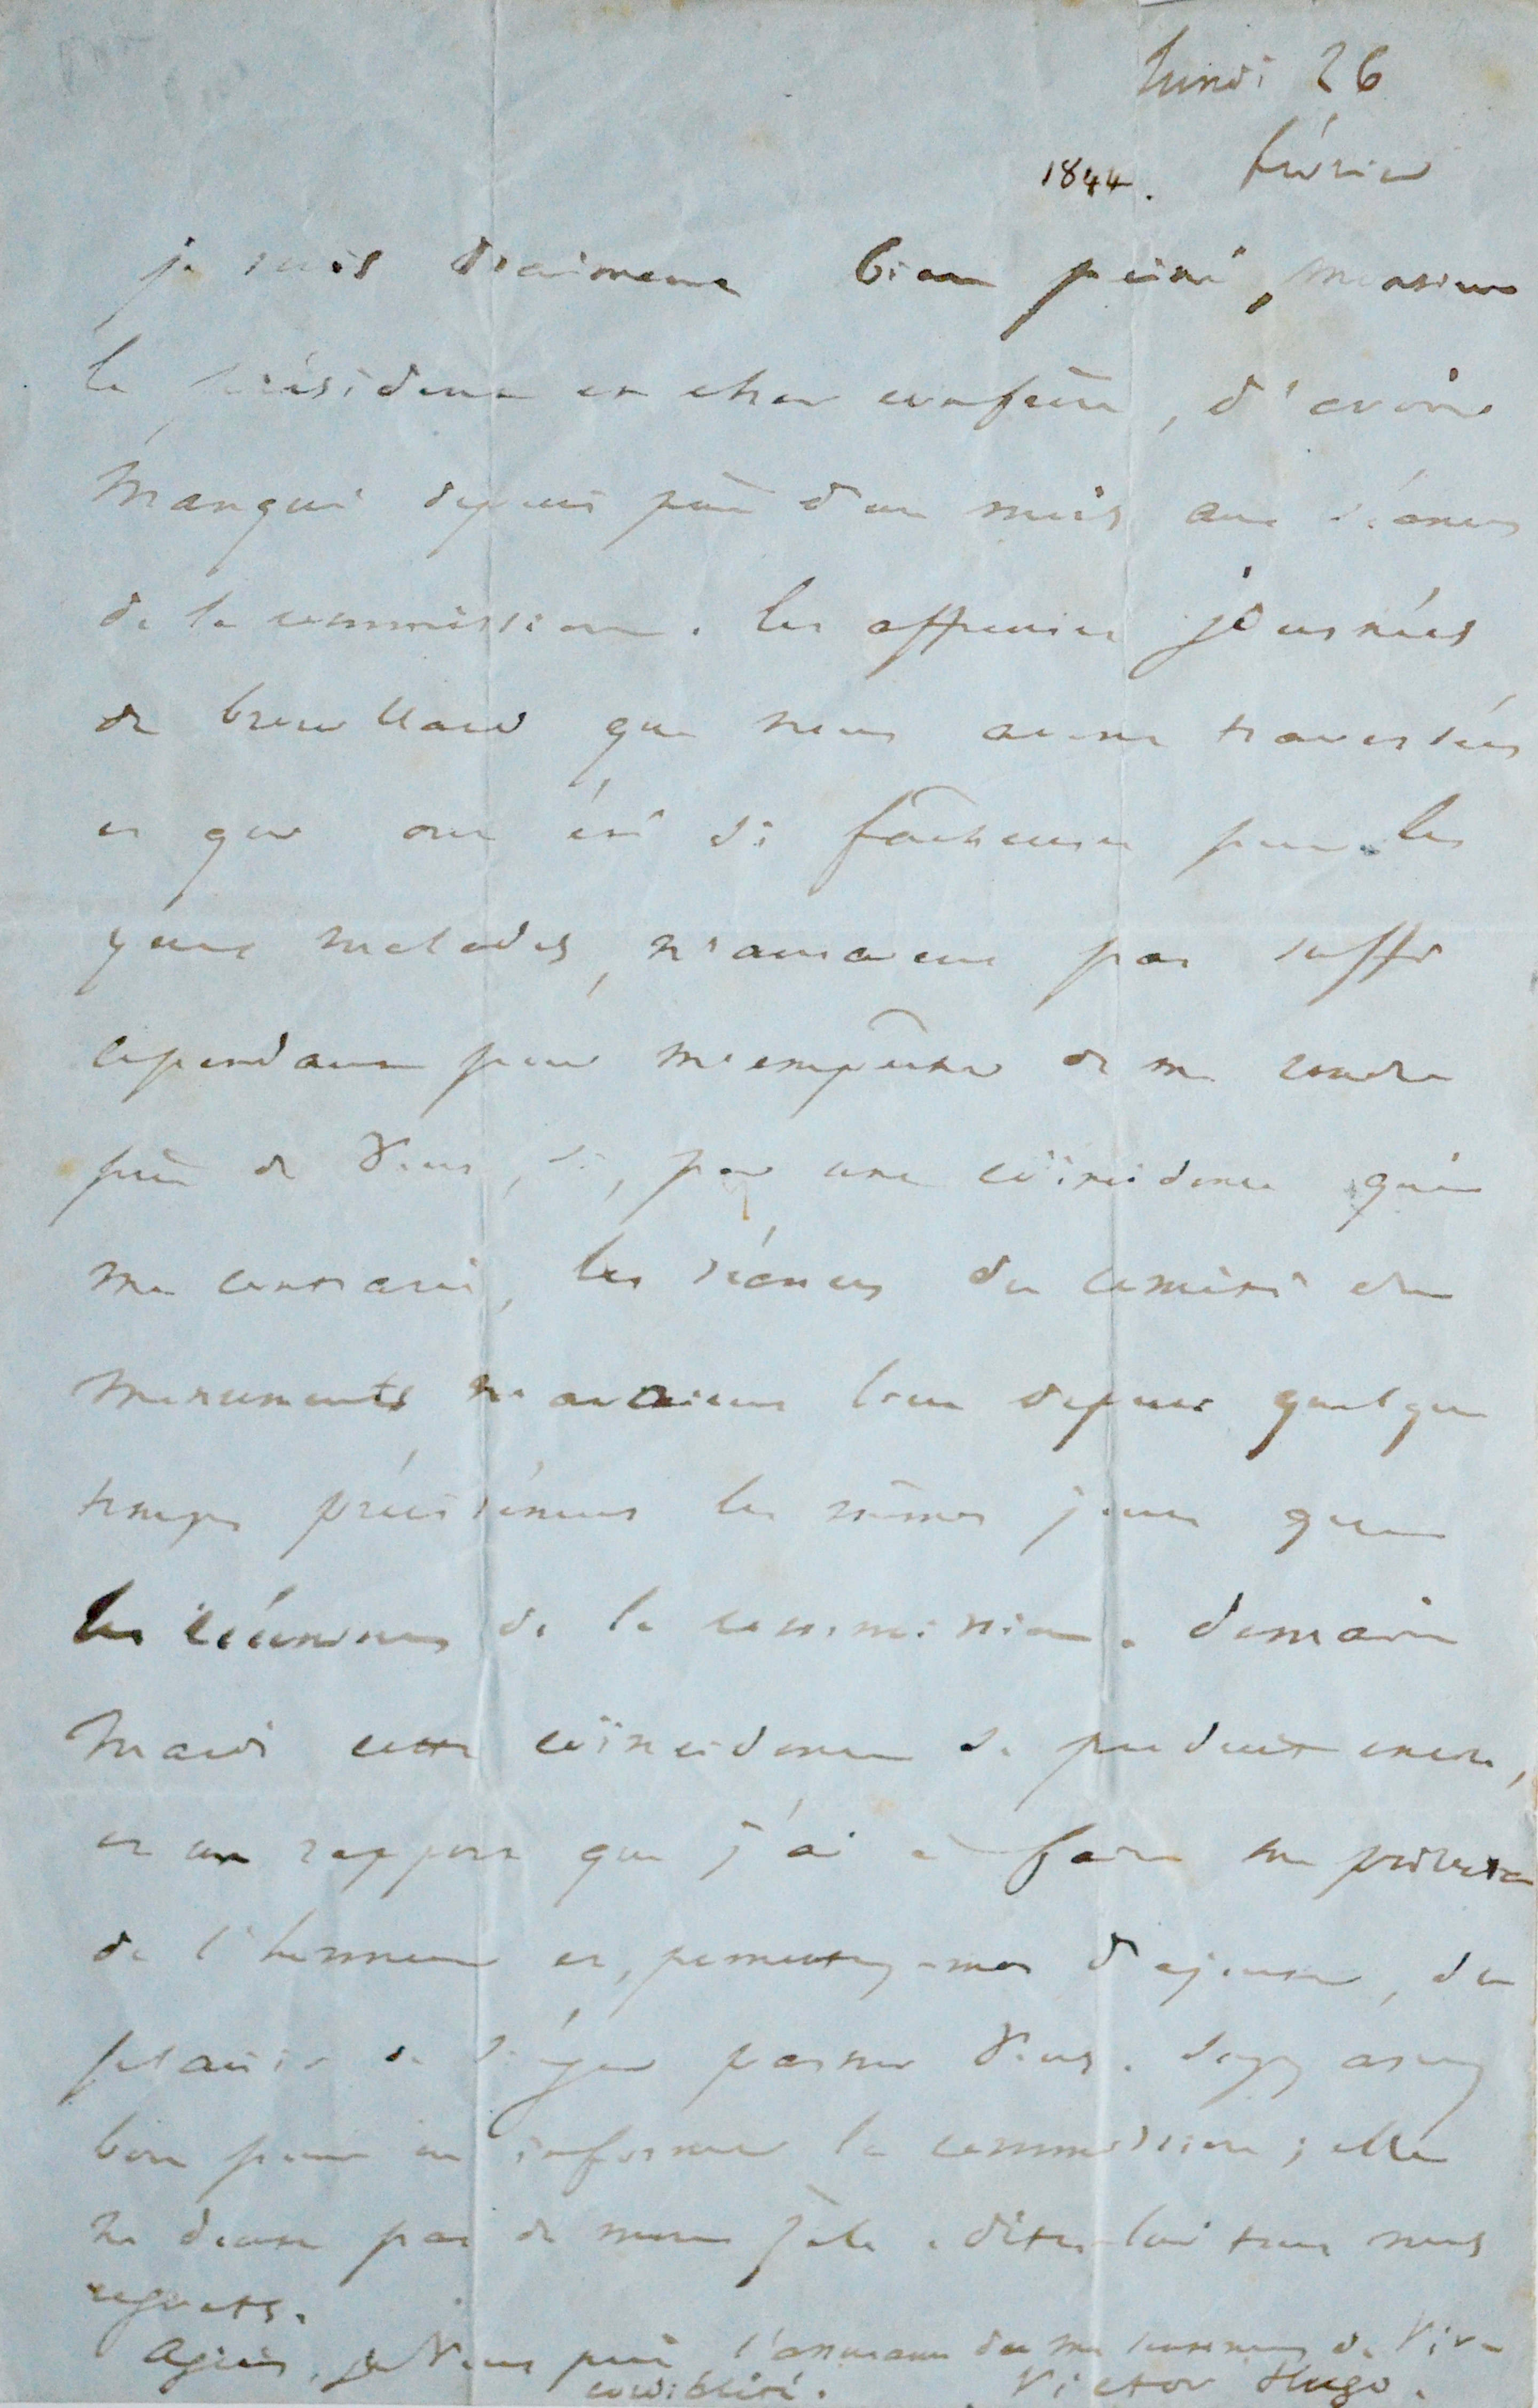 lundi 26
1844. février
je suis vraiment bien peiné, monsieur
le président et cher confrère, d'avoir
manqué depuis près d'un mois aux séances
de la commission. les affreuses journées
de brouillard que nous avons traversées
et qui ont été si fâcheuses pour les
yeux malades, n'auraient pas suffi
cependant pour m'empêcher de me rendre
près de vous, si, par une coïncidence qui
me contrarie, les séances du comité des
monuments n'avaient lieu depuis quelque
temps précisément les mêmes jours que
les réunions de la commission. demain
mardi cette coïncidence se produit encore,
et un rapport que j'ai à faire me privera
de l'honneur et, permettez-moi d'ajouter, du
plaisir de siéger parmi vous. soyez assez
bon pour en informer la commission ; elle
ne doute pas de mon zèle. dites-lui tous mes
regrets.
Agréez, je vous prie l'assurance de mes sentiments de vive
cordialité. Victor Hugo.